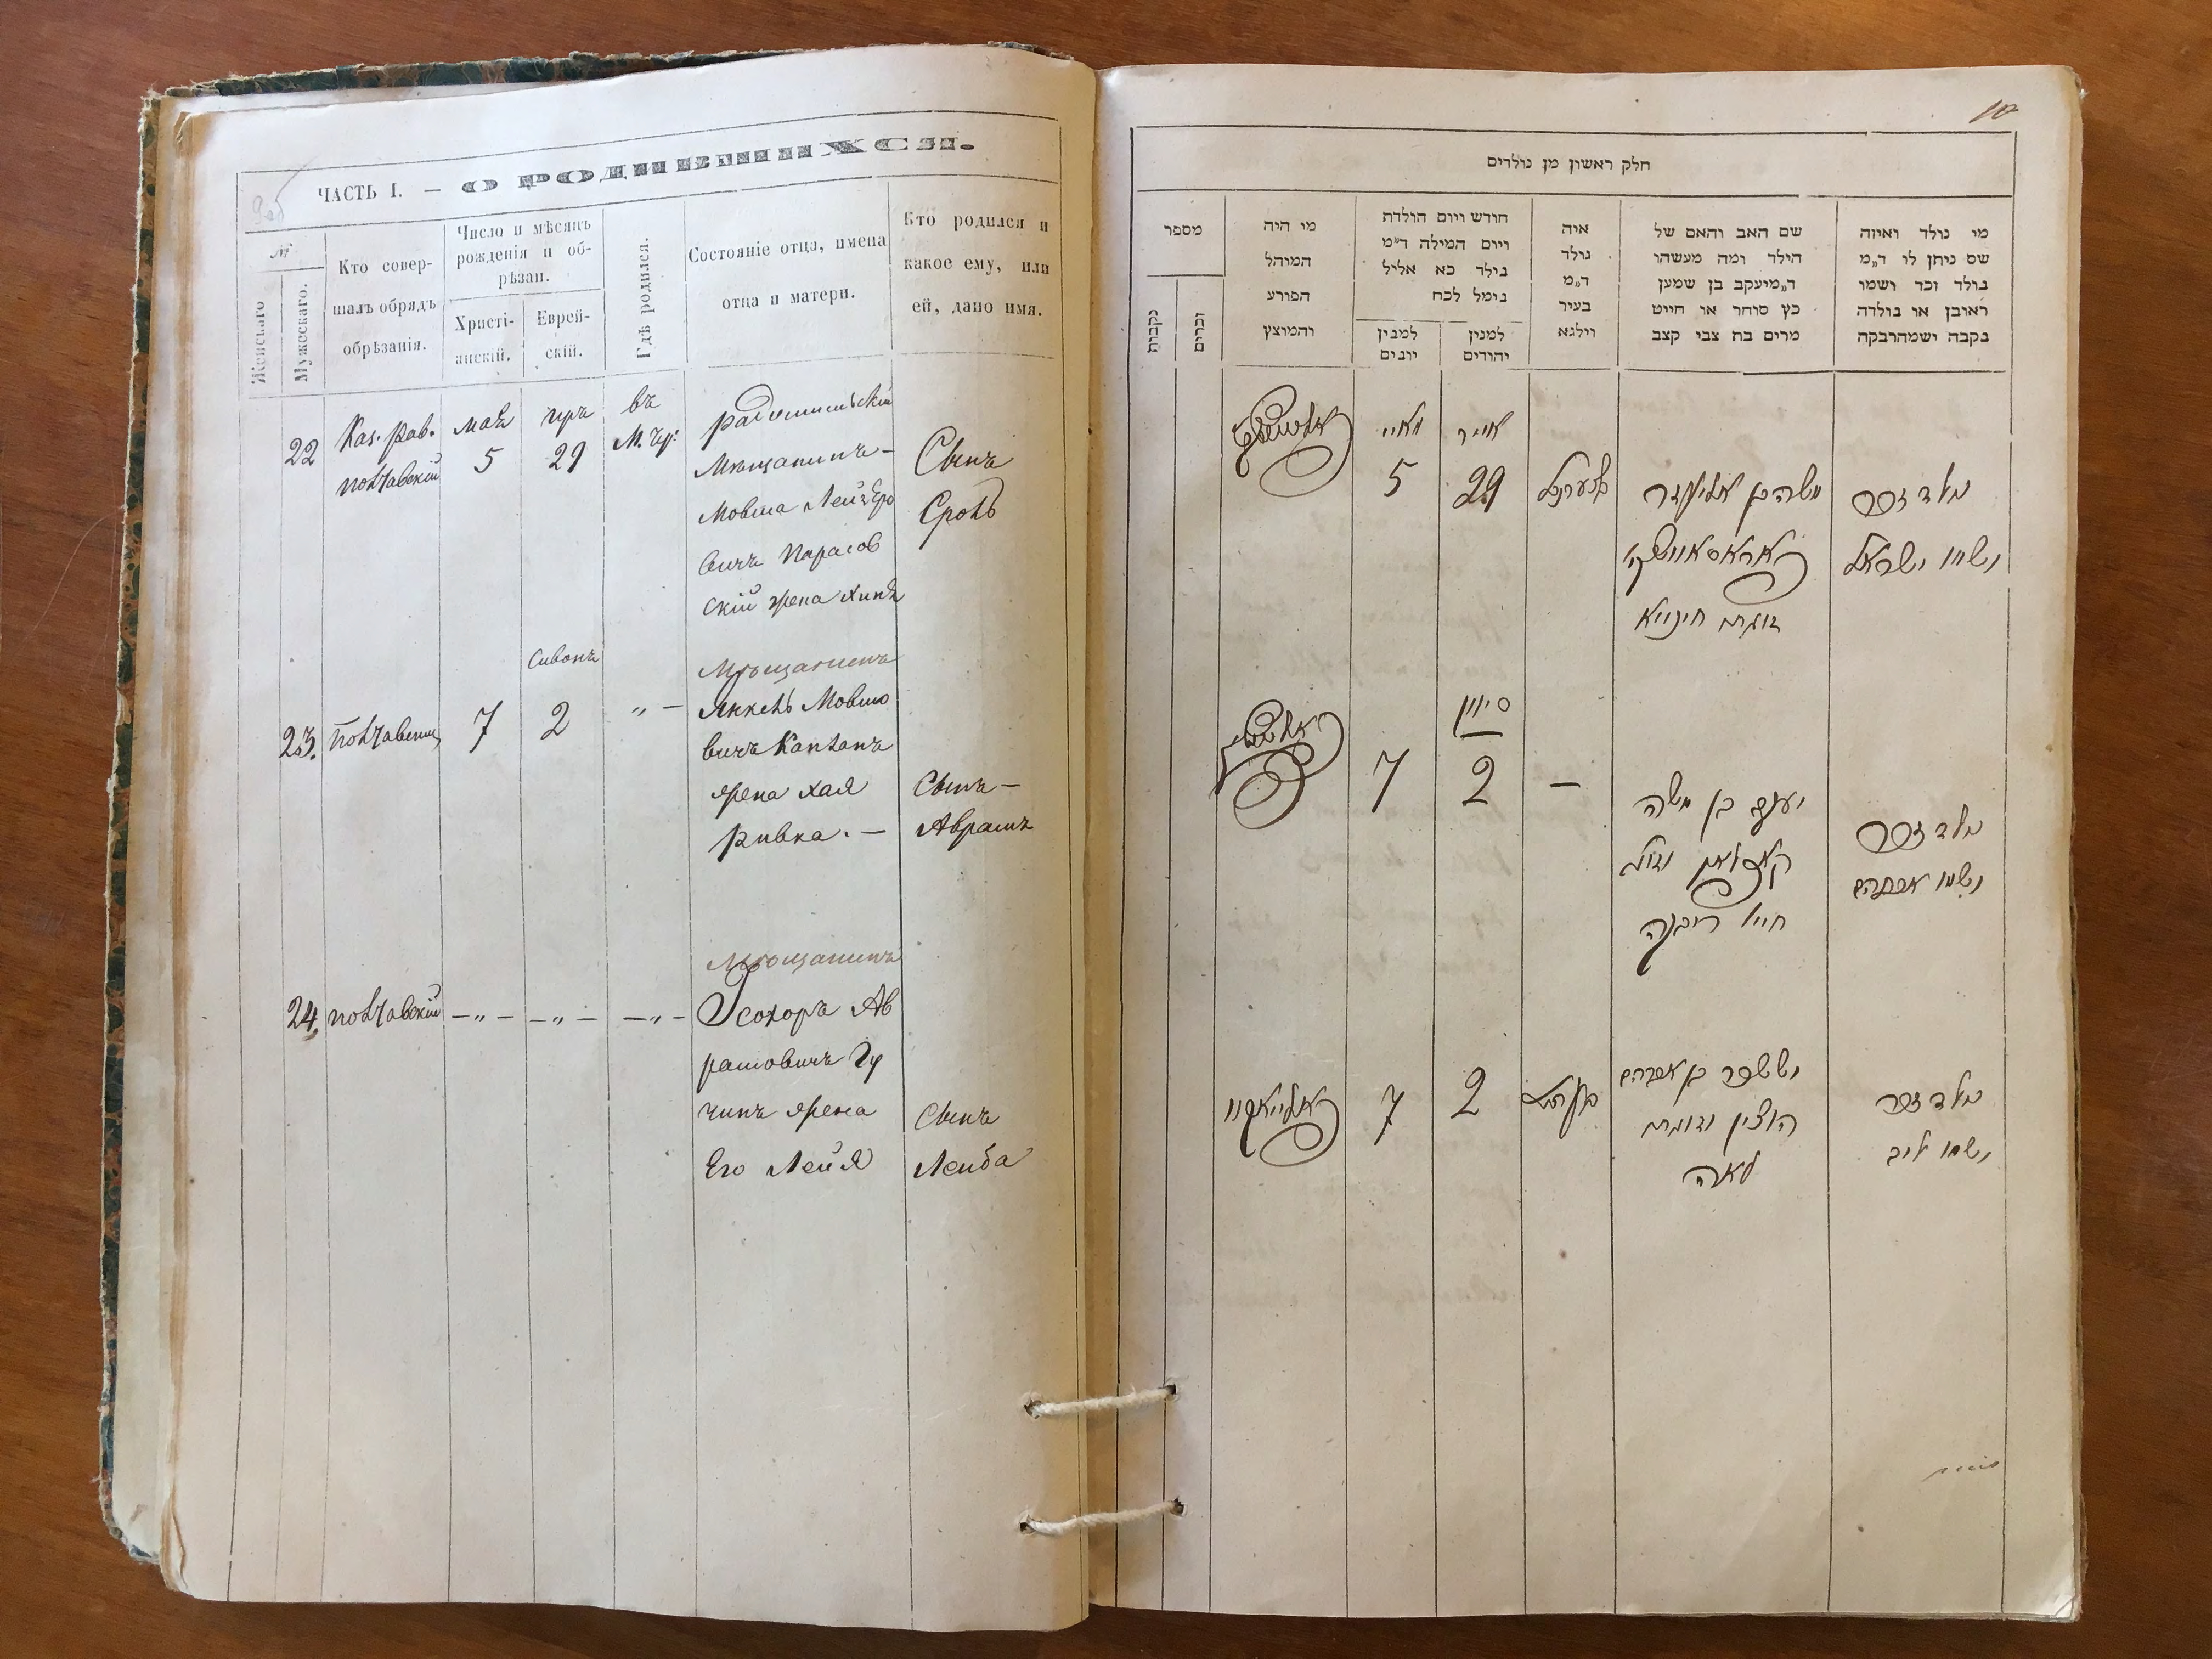 ЧАСТЬ I. — О РОДИВШИХСЯ.
№
Женскаго
Мужескаго.
Кто совер-
шалъ обрядъ
обрѣзанія.
Число и мѣсяцъ
рожденія и об-
рѣзан.
Христі-
анскій.
Еврей-
скій.
Гдѣ родился.
Состояніе отца, имена
отца и матери.
Кто родился и
какое ему, или
ей, дано имя.
22
Каз. Рав.
май
5
29
въ
М. Чр:
Мѣщанинъ -
Мовша Лейзеро
вичъ
скій жена Хиня
Сынъ
Сроль
23.
7
Сивонъ
2
" -
Мѣщанинъ
Янкель Мовшо
вичъ Капланъ
жена Хая
Ривка. -
Сынъ -
Аврамъ
24,
- " -
- " -
- " -
Мѣщанинъ
Ісохоръ Ав
рамовичъ Гу
чинъ жена
Его Лейя
Сынъ
Лейба
10
חלק ראשון מן נולדים
מספר
נקבות
זכרים
מי היה
המוהל
הפורע
והמוצץ
חודש ויום הולדת
ויום המילה ד״מ
נולד כא אליל
נימל לכח
למנין
יונים
למנין
יהודים
איה
נולד
ד״מ
בעיר
ווילנא
שם האב והאם של
הילד ומה מעשהו
ד״מ יעקב בן שמען
כץ סוחר או חייט
מרים בת צבי קצב
מי נולד ואיזה
שם ניתן לו ד״מ
נולד זכר ושמו
ראובן או נולדה
נקבה ישמהרבקה
מאיי
5
אייר
29
משה בן אליעזר
וזוגתו חינייא
נולד זכר
ושמו ישראל
7
סיוון
2
—
יעקב בן משה
קאפלאן וזוג׳
חייא ריבקה
נולד זכר
ושמו אברהם
7
2
יששכר בן אברהם
הוצין וזוגתו
לאה
נולד זכר
ושמו ליב